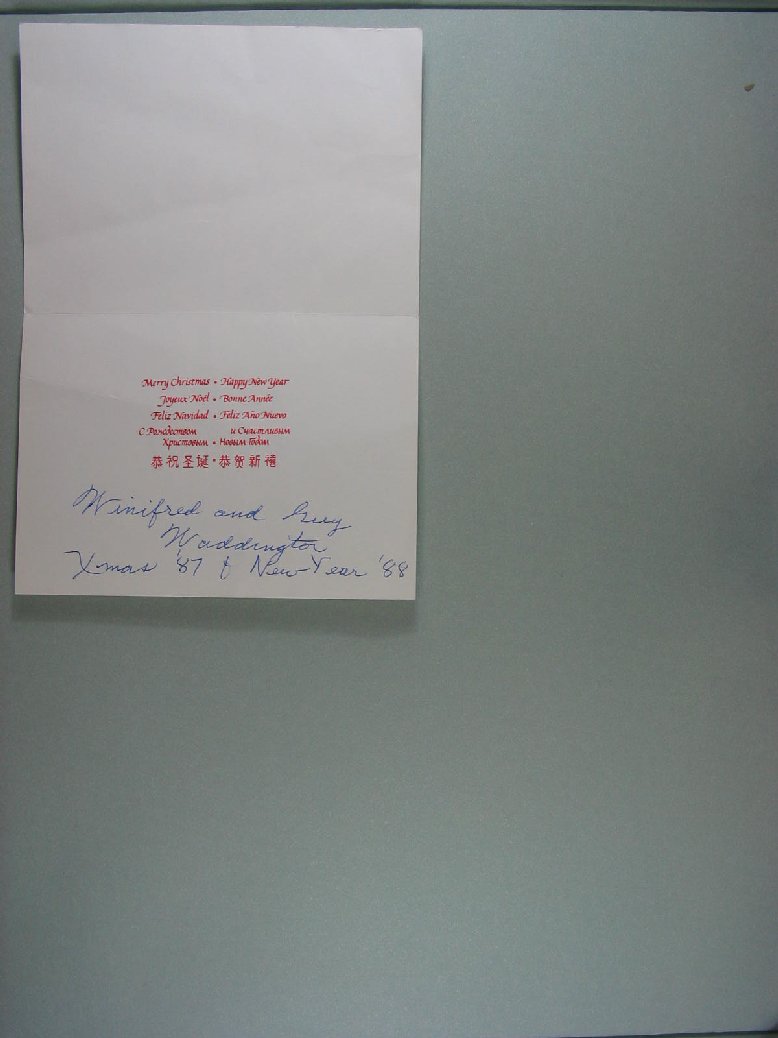 Merry Christmas • Happy New Year
Joyeux Noël • Bonne Année
Feliz Navidad • Feliz Año Nuevo
С Рождеством и Счастливым
Христовым • Новым Годом
恭祝圣诞·恭贺新禧
Winifred and Guy
Waddington
Xmas '87 & New Year '88